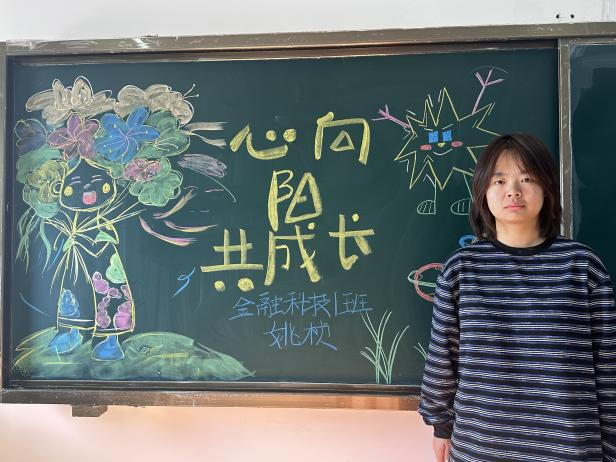 心向
阳
共成长
金融科技1班
姚桢